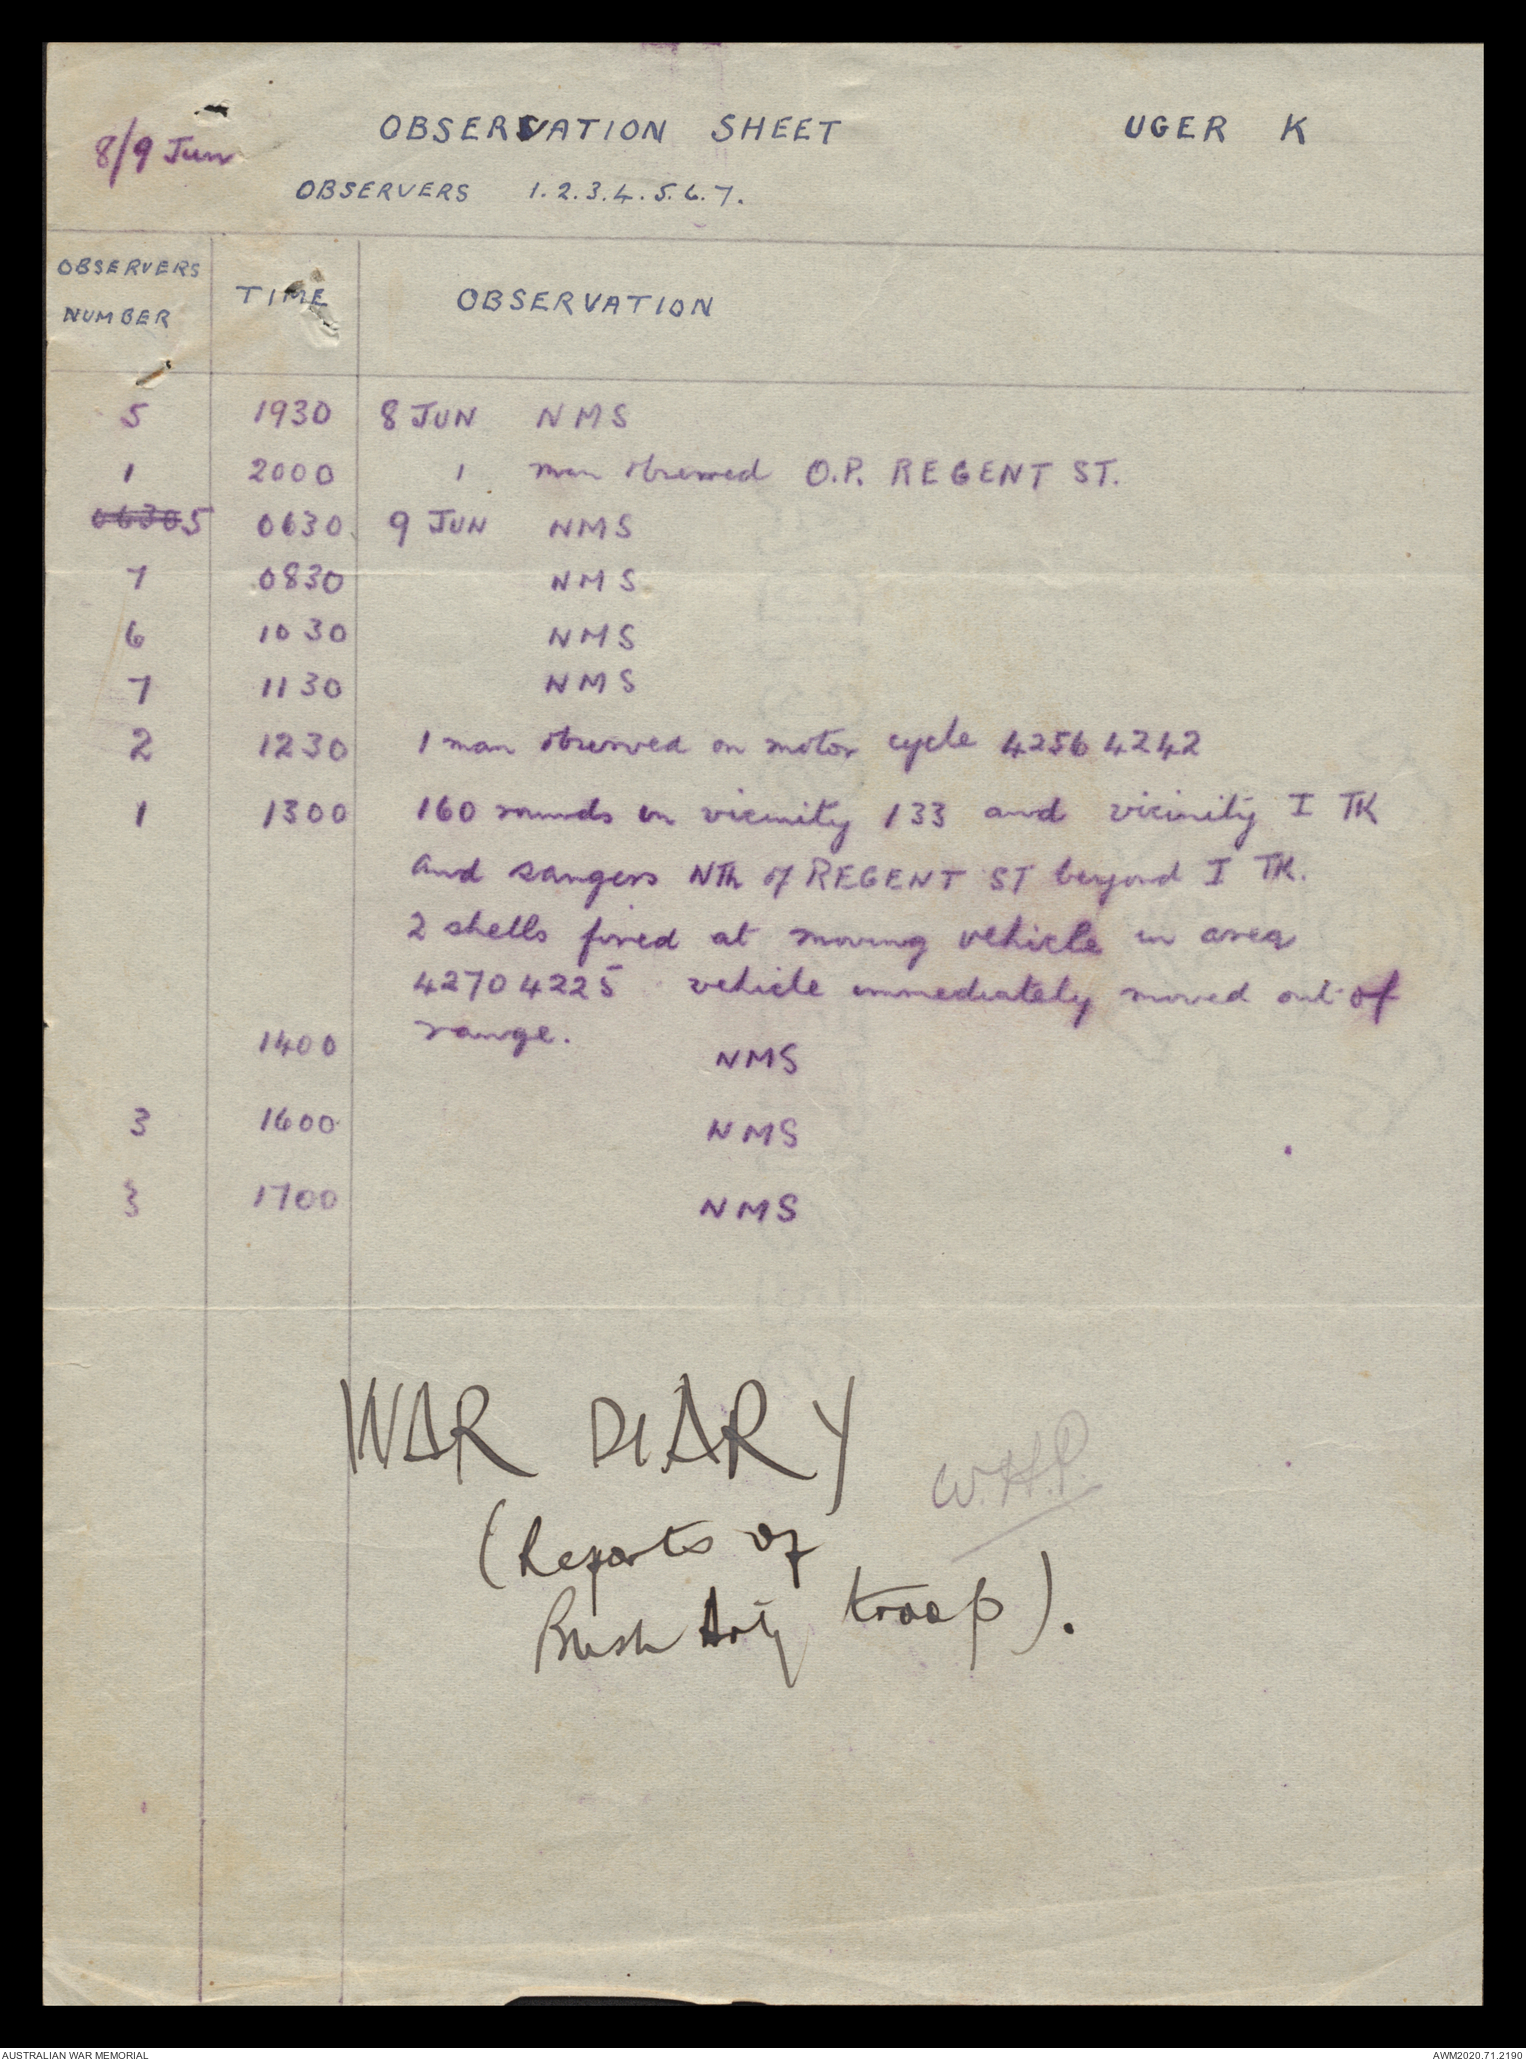 8/9 Jun
OBSERVATION SHEET UGER K
OBSERVERS 1.2.3.4.5.6.7.
OBSERVERS NUMBER TIME OBSERVATION
5 1930 8 JUN NMS
1 2000 1 man observed O.P. REGENT ST.
06305 0630 9 JUN NMS
7 0830 NMS
6 1030 NMS
7 1130 NMS
2 1230 1 man observed on motor cycle 4256 4242
1 1300 160 rounds in vicinity 133 and vicinity I TK
and sangers Nth of REGENT ST beyond I TK.
2 shells fired at moving vehicle in area
4270 4225 vehicle immediately moved out of
range.
1400 NMS
3 1600 NMS
3 1700 NMS
WAR DIARY
W.H.P.
(Reports of
Bush Arty troop).
AUSTRALIAN WAR MEMORIAL AWM2020.71.2190